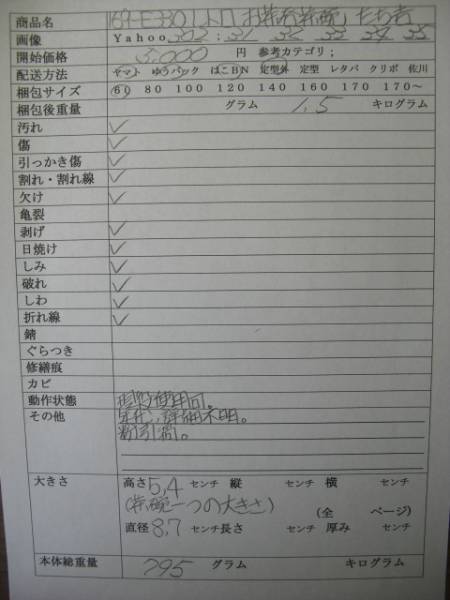 商品名 169-E330 レトロ お茶番茶碗
画像 Yahoo 302: 31 32 33 34 35
開始価格 3,000 円 参考カテゴリ；
配送方法 ヤマト ゆうパック はこBN 定型外 定型 レタパ クリポ 佐川
梱包サイズ 60 80 100 120 140 160 170 170～
梱包後重量 グラム 1.5 キログラム
汚れ ✓
傷 ✓
引っかき傷 ✓
割れ・割れ線 ✓
欠け ✓
亀裂
剥げ ✓
日焼け ✓
しみ ✓
破れ ✓
しわ ✓
折れ線 ✓
錆
ぐらつき
修繕痕
カビ
動作状態 使用可。
その他 年代、詳細不明。
大きさ 高さ 5,4 センチ 縦 センチ 横 センチ
(茶碗一つの大きさ) (全 ページ)
直径 8,7 センチ 長さ センチ 厚み センチ
本体総重量 795 グラム キログラム